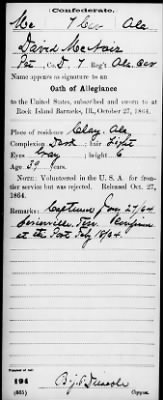 Confederate.
Mc 7 Cav Ala
David McNair
Pvt, Co. D. 7 Reg't Ala. Cav
Name appears as signature to an
Oath of Allegiance
to the United States, subscribed and sworn to at
Rock Island Barracks, Ill., October 27, 1864.
Place of residence Clay, Ala
Complexion Dark ; hair Light
Eyes Gray ; height 6
Age 39 years.
NOTE: Volunteered in the U. S. A. for fron-
tier service but was rejected. Released Oct. 27,
1864.
Remarks: Captured Jany 27/64
Sevierville, Tenn.
at the Post July 18/64.
Number of roll:
194
(665) Copyist.